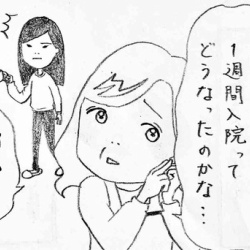 1週間入院って
どうなったのかな…